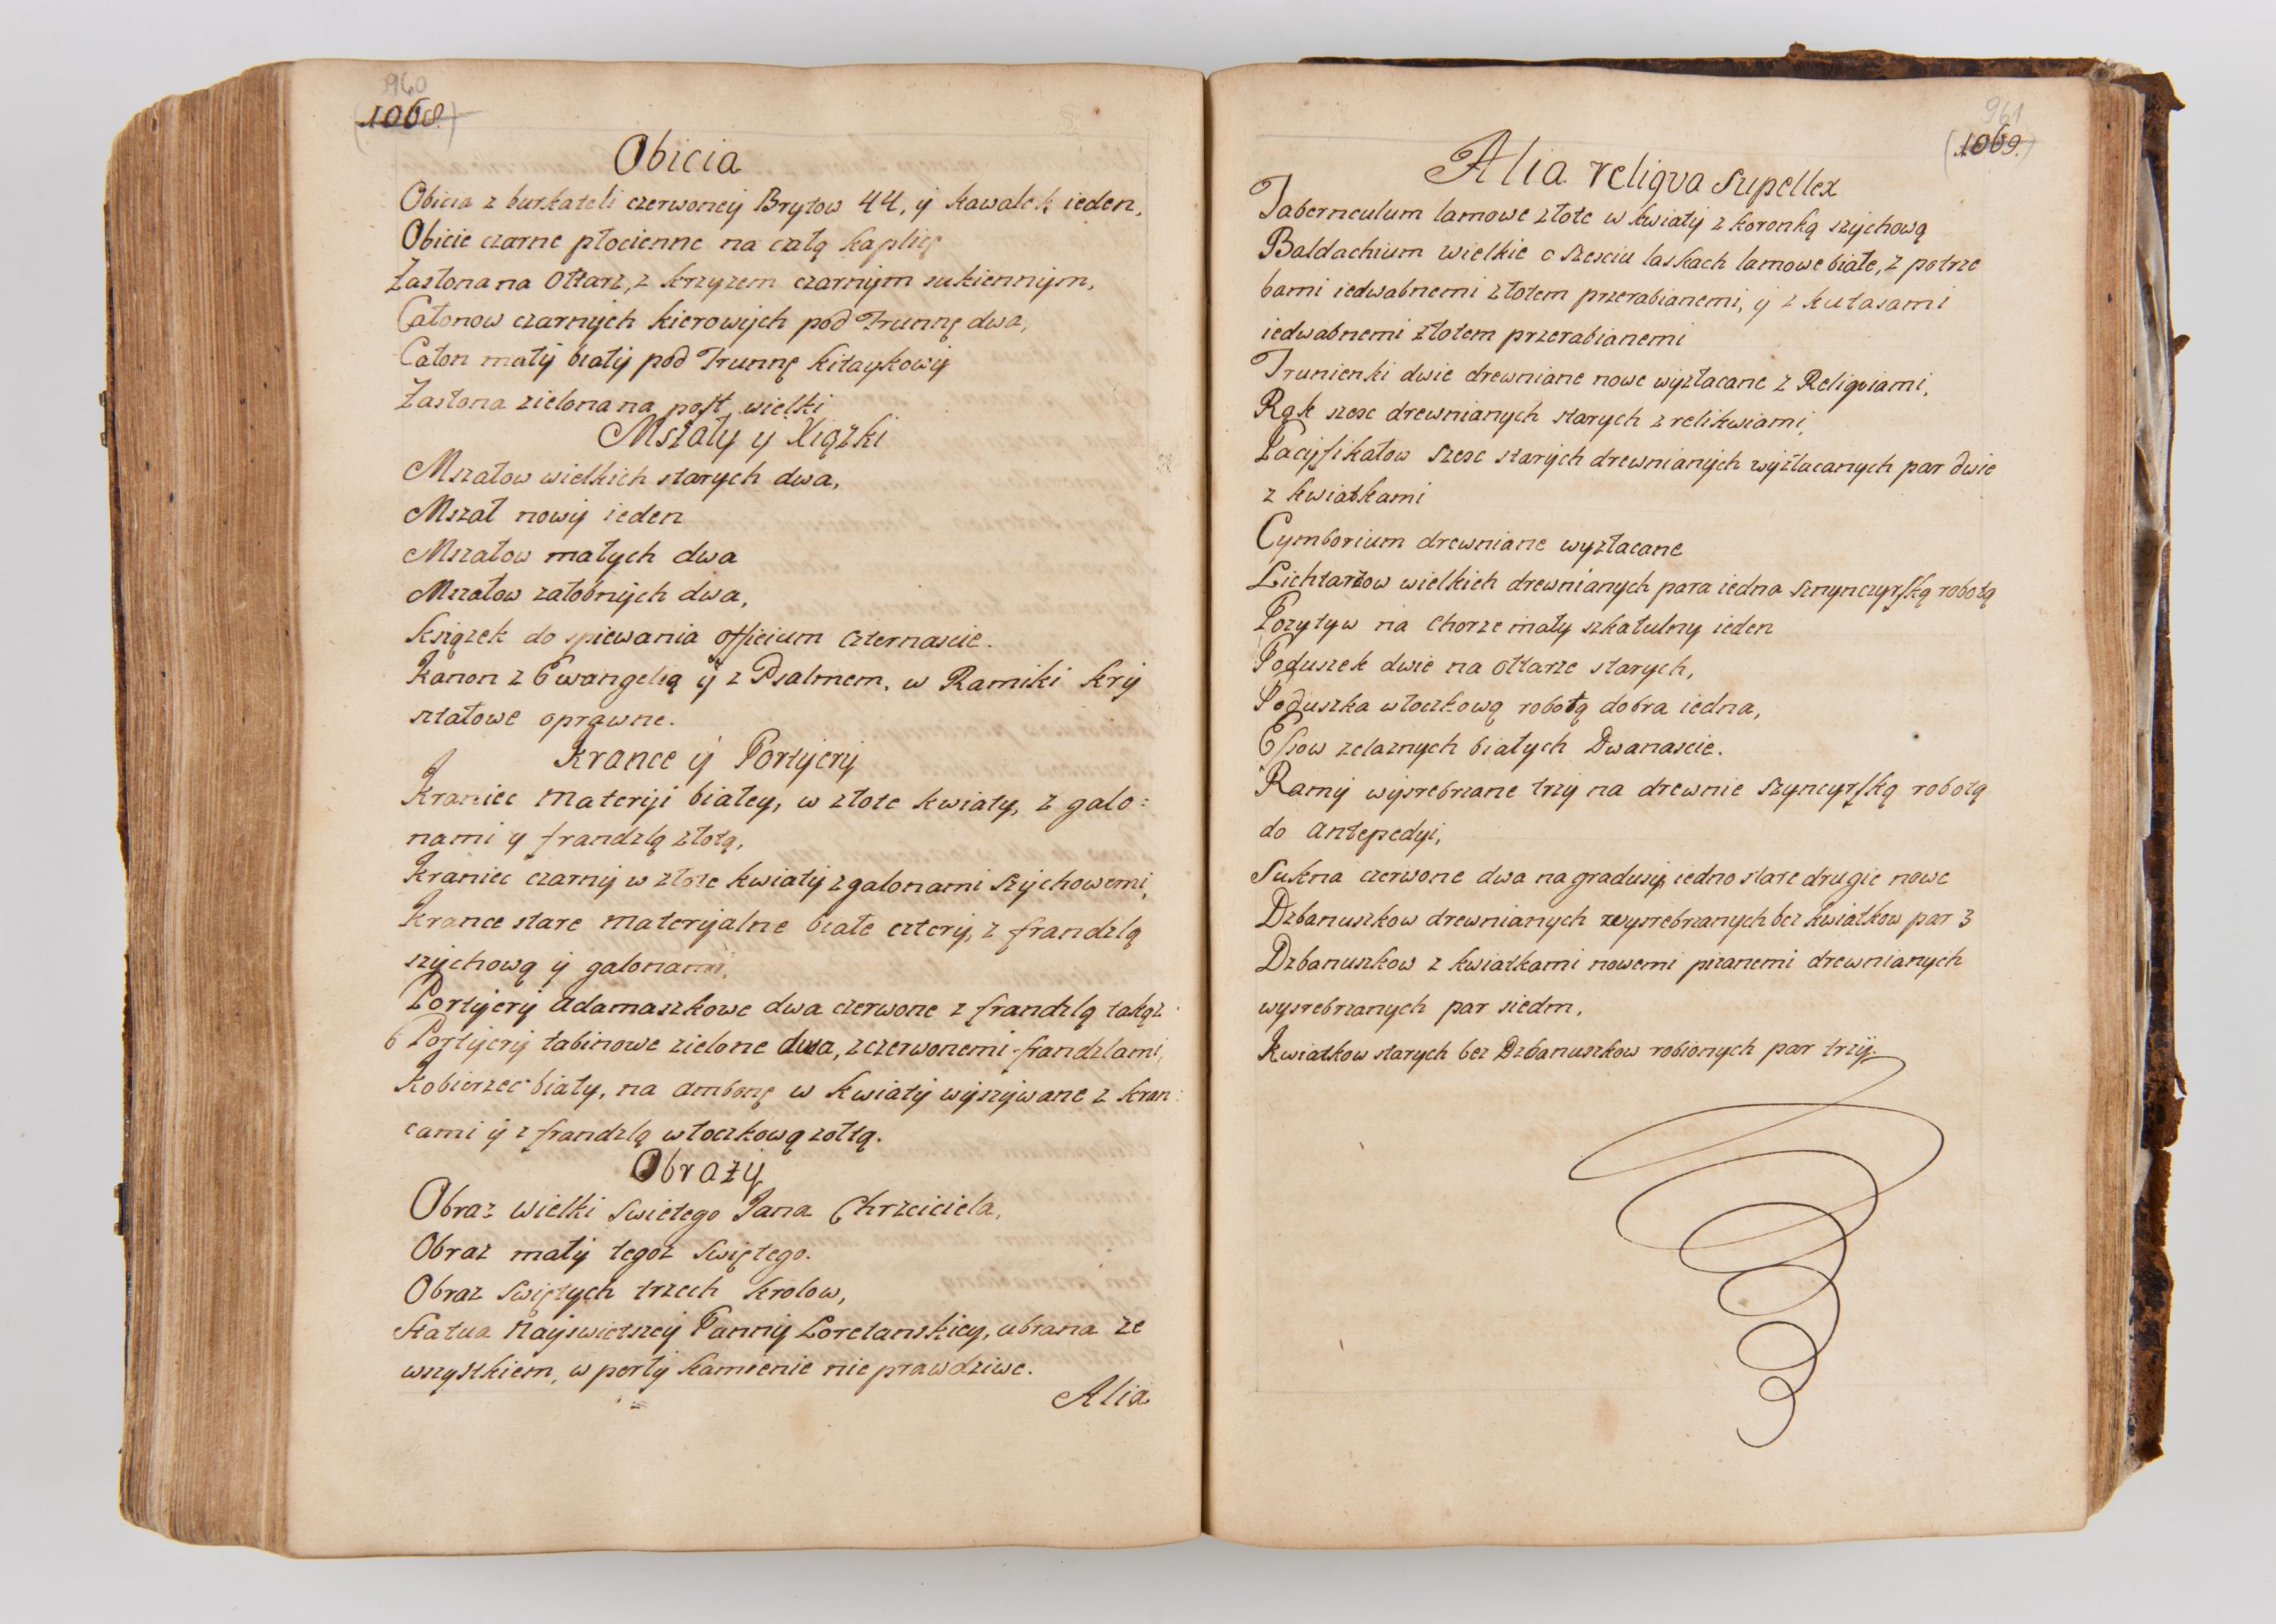 960
(1068.)
Obicia
Obicia z burkateli czerwoney Brytow 44, y kawalek ieden,
Obicie czarne płocienne na całą kaplicę
Zasłona na Ołtarz, z krzyzem czarnym sukiennym,
Całonow czarnych kierowych pod Trunnę dwa,
Całon mały biały pod Trunnę kitaykowy
Zasłona zielona na post wielki
Mszały y Xiązki
Mszałow wielkich starych dwa,
Mszał nowy ieden
Mszałow małych dwa
Mszałow załobnych dwa,
Ksiązek do spiewania officium czternascie.
Kanon z Ewangelią y z Psalmem, w Ramiki kry
ształowe oprawne.
Krance y Portyery
Kraniec materyi białey, w złote kwiaty, z galo=
nami y frandzlą złotą,
Kraniec czarny w złote kwiaty z galonami szychowemi,
Krance stare materyalne białe cztery, z frandzlą
szychową y galonami,
Portyery adamaszkowe dwa czerwone z frandzlą takąz
6 Portyery tabinowe zielone dwa, z czerwonemi frandzlami,
Kobierzec biały, na ambonę w kwiaty wyszywane z kran:
cami y z frandzlą włoczkową zołtą.
Obrazy
Obraz wielki swietego Jana Chrzciciela,
Obraz mały tegoz swiętego.
Obraz swiętych trzech krolow,
Statua Nayswietszey Panny Loretanskiey, ubrana ze
wszystkiem, w perły kamienie nie prawdziwe.
Alia
961
(1069.)
Alia reliqva supellex
Tabernculum lamowe złote w kwiaty z koronką szychową
Baldachium wielkie o szesciu laskach lamowe białe, z potrze
bami iedwabnemi złotem przerabianemi, y z kutasami
iedwabnemi złotem przerabianemi
Trunienki dwie drewniane nowe wyzłacane z Reliqviami,
Rąk szesc drewnianych starych z relikwiami,
Pacyfikałow szesc starych drewnianych wyzłacanych par dwie
z kwiatkami
Cymborium drewniane wyzłacane
Lichtarzow wielkich drewnianych para iedna snynczyrską robotą
Pozytyw na Chorze mały szkatulny ieden
Poduszek dwie na ołtarze starych,
Poduszka włoczkową robotą dobra iedna,
Essow zelaznych białych Dwanascie.
Ramy wysrebrzane trzy na drewnie szyncyrską robotą
do Antepedyi,
Sukna czerwone dwa na gradusy, iedno stare drugie nowe
Dzbanuszkow drewnianych wysrebrzanych bez kwiatkow par 3
Dzbanuszkow z kwiatkami nowemi pizanemi drewnianych
wysrebrzanych par siedm,
Kwiatkow starych bez Dzbanuszkow robionych par trzy.